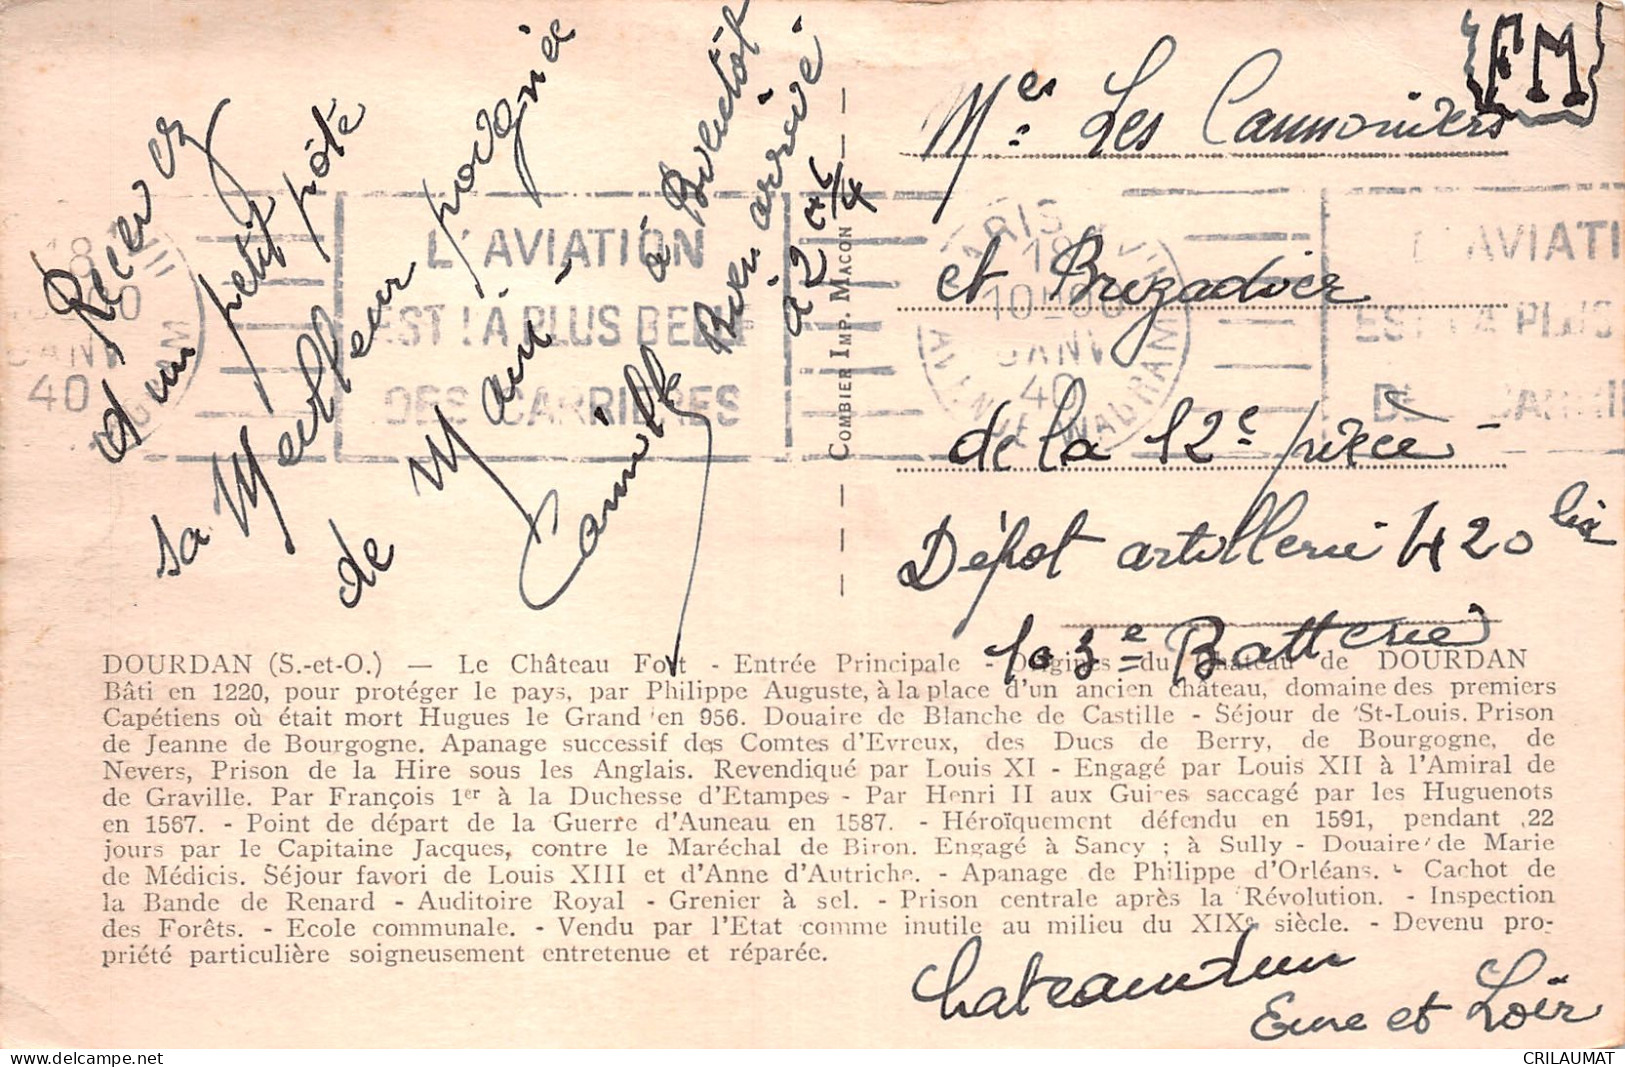 Recevez
d'un petit pôte
sa Meilleur poignée
de Main -
à Bientôt
Camille
Bien arrivé
à 2 h 1/4
FM
Mes Les Cannoniers
et Brigadier
de la 12e pièce -
Dépot artillerie 420 bis
103e Batterie
Chateaudun
Eure et Loir
18
40
L'AVIATION
EST LA PLUS BELLE
DES CARRIERES
PARIS
18
10H00
JANV
40
AVENUE WAGRAM
L'AVIATI
EST LA PLUS
DES CARRI
COMBIER IMP. MACON
DOURDAN (S.-et-O.) — Le Château Fort - Entrée Principale - Origines du Château de DOURDAN
Bâti en 1220, pour protéger le pays, par Philippe Auguste, à la place d'un ancien château, domaine des premiers
Capétiens où était mort Hugues le Grand en 956. Douaire de Blanche de Castille - Séjour de St-Louis. Prison
de Jeanne de Bourgogne. Apanage successif des Comtes d'Evreux, des Ducs de Berry, de Bourgogne, de
Nevers, Prison de la Hire sous les Anglais. Revendiqué par Louis XI - Engagé par Louis XII à l'Amiral de
de Graville. Par François 1er à la Duchesse d'Etampes - Par Henri II aux Guises saccagé par les Huguenots
en 1567. - Point de départ de la Guerre d'Auneau en 1587. - Héroïquement défendu en 1591, pendant 22
jours par le Capitaine Jacques, contre le Maréchal de Biron. Engagé à Sancy ; à Sully - Douaire de Marie
de Médicis. Séjour favori de Louis XIII et d'Anne d'Autriche. - Apanage de Philippe d'Orléans. - Cachot de
la Bande de Renard - Auditoire Royal - Grenier à sel. - Prison centrale après la Révolution. - Inspection
des Forêts. - Ecole communale. - Vendu par l'Etat comme inutile au milieu du XIXe siècle. - Devenu pro-
priété particulière soigneusement entretenue et réparée.
CRILAUMAT